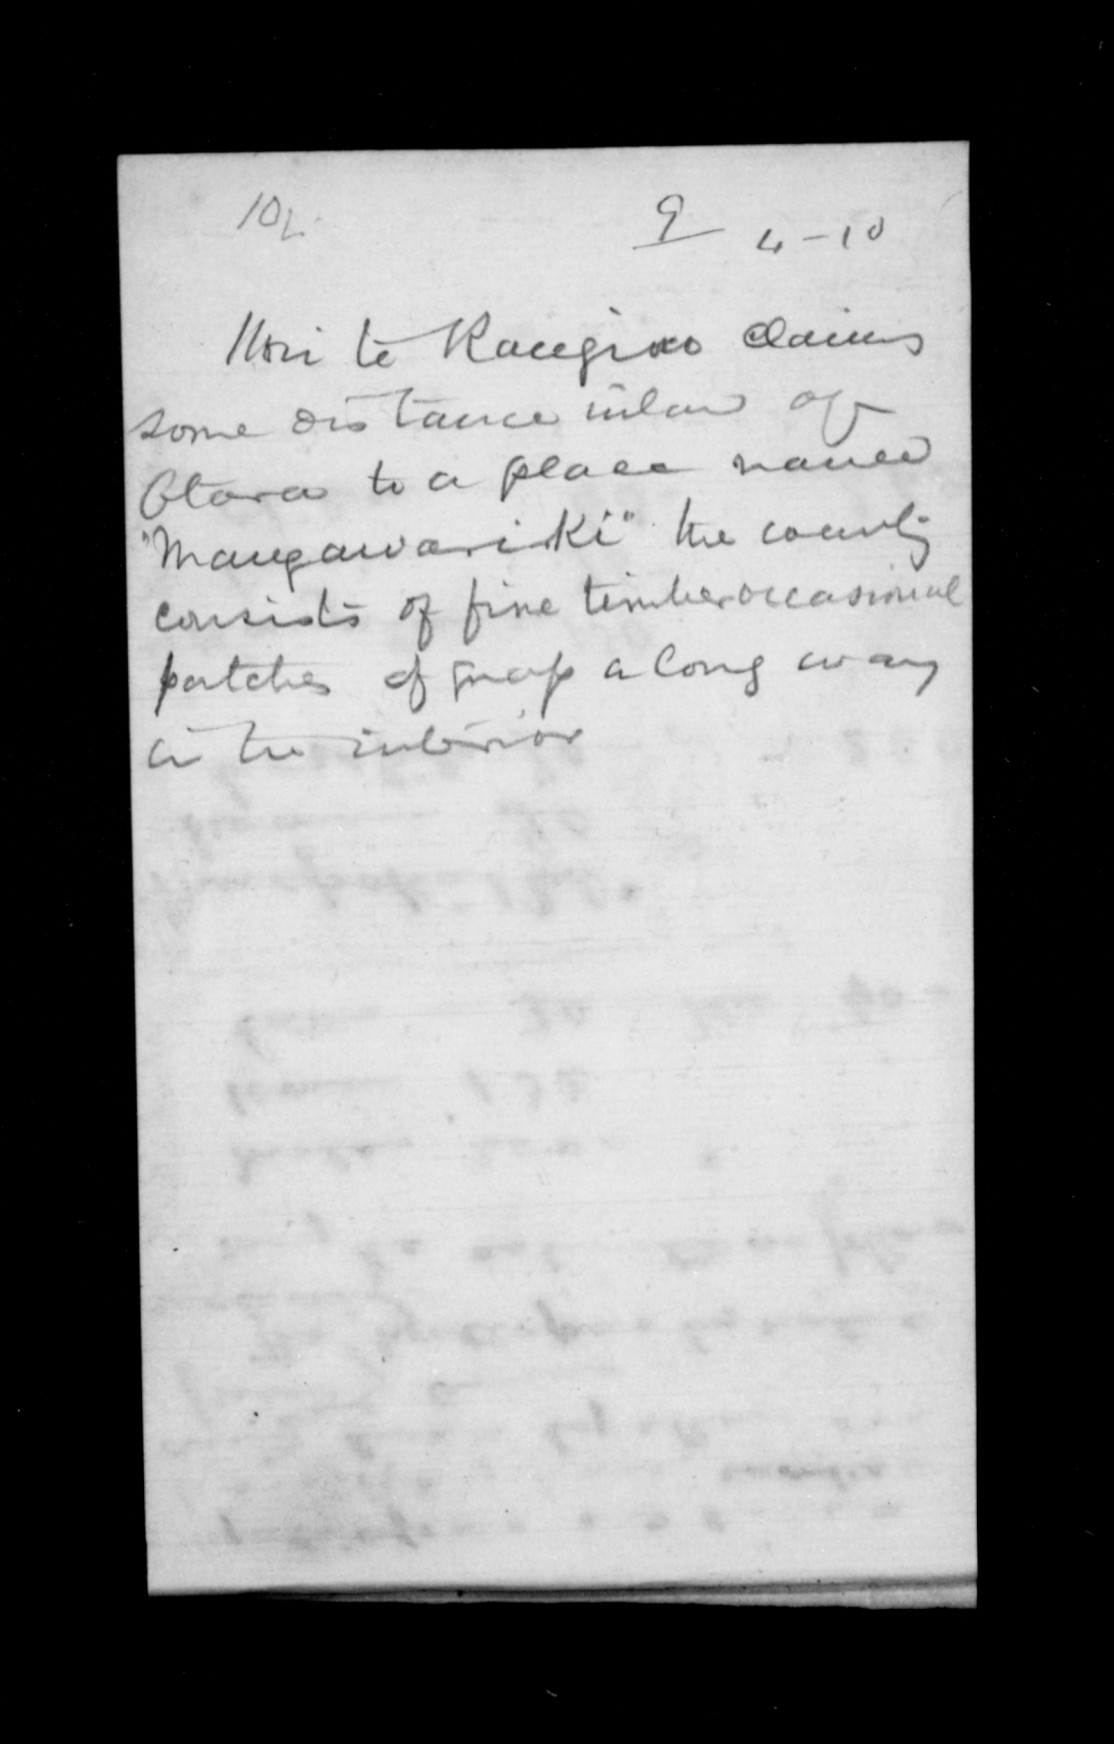 10
9 4-10
Hori te Rangiao claims
some distance inland of
Otara to a place named
"Mangawariki" the country
consists of fine timber occasional
patches of grass a long way
in the interior